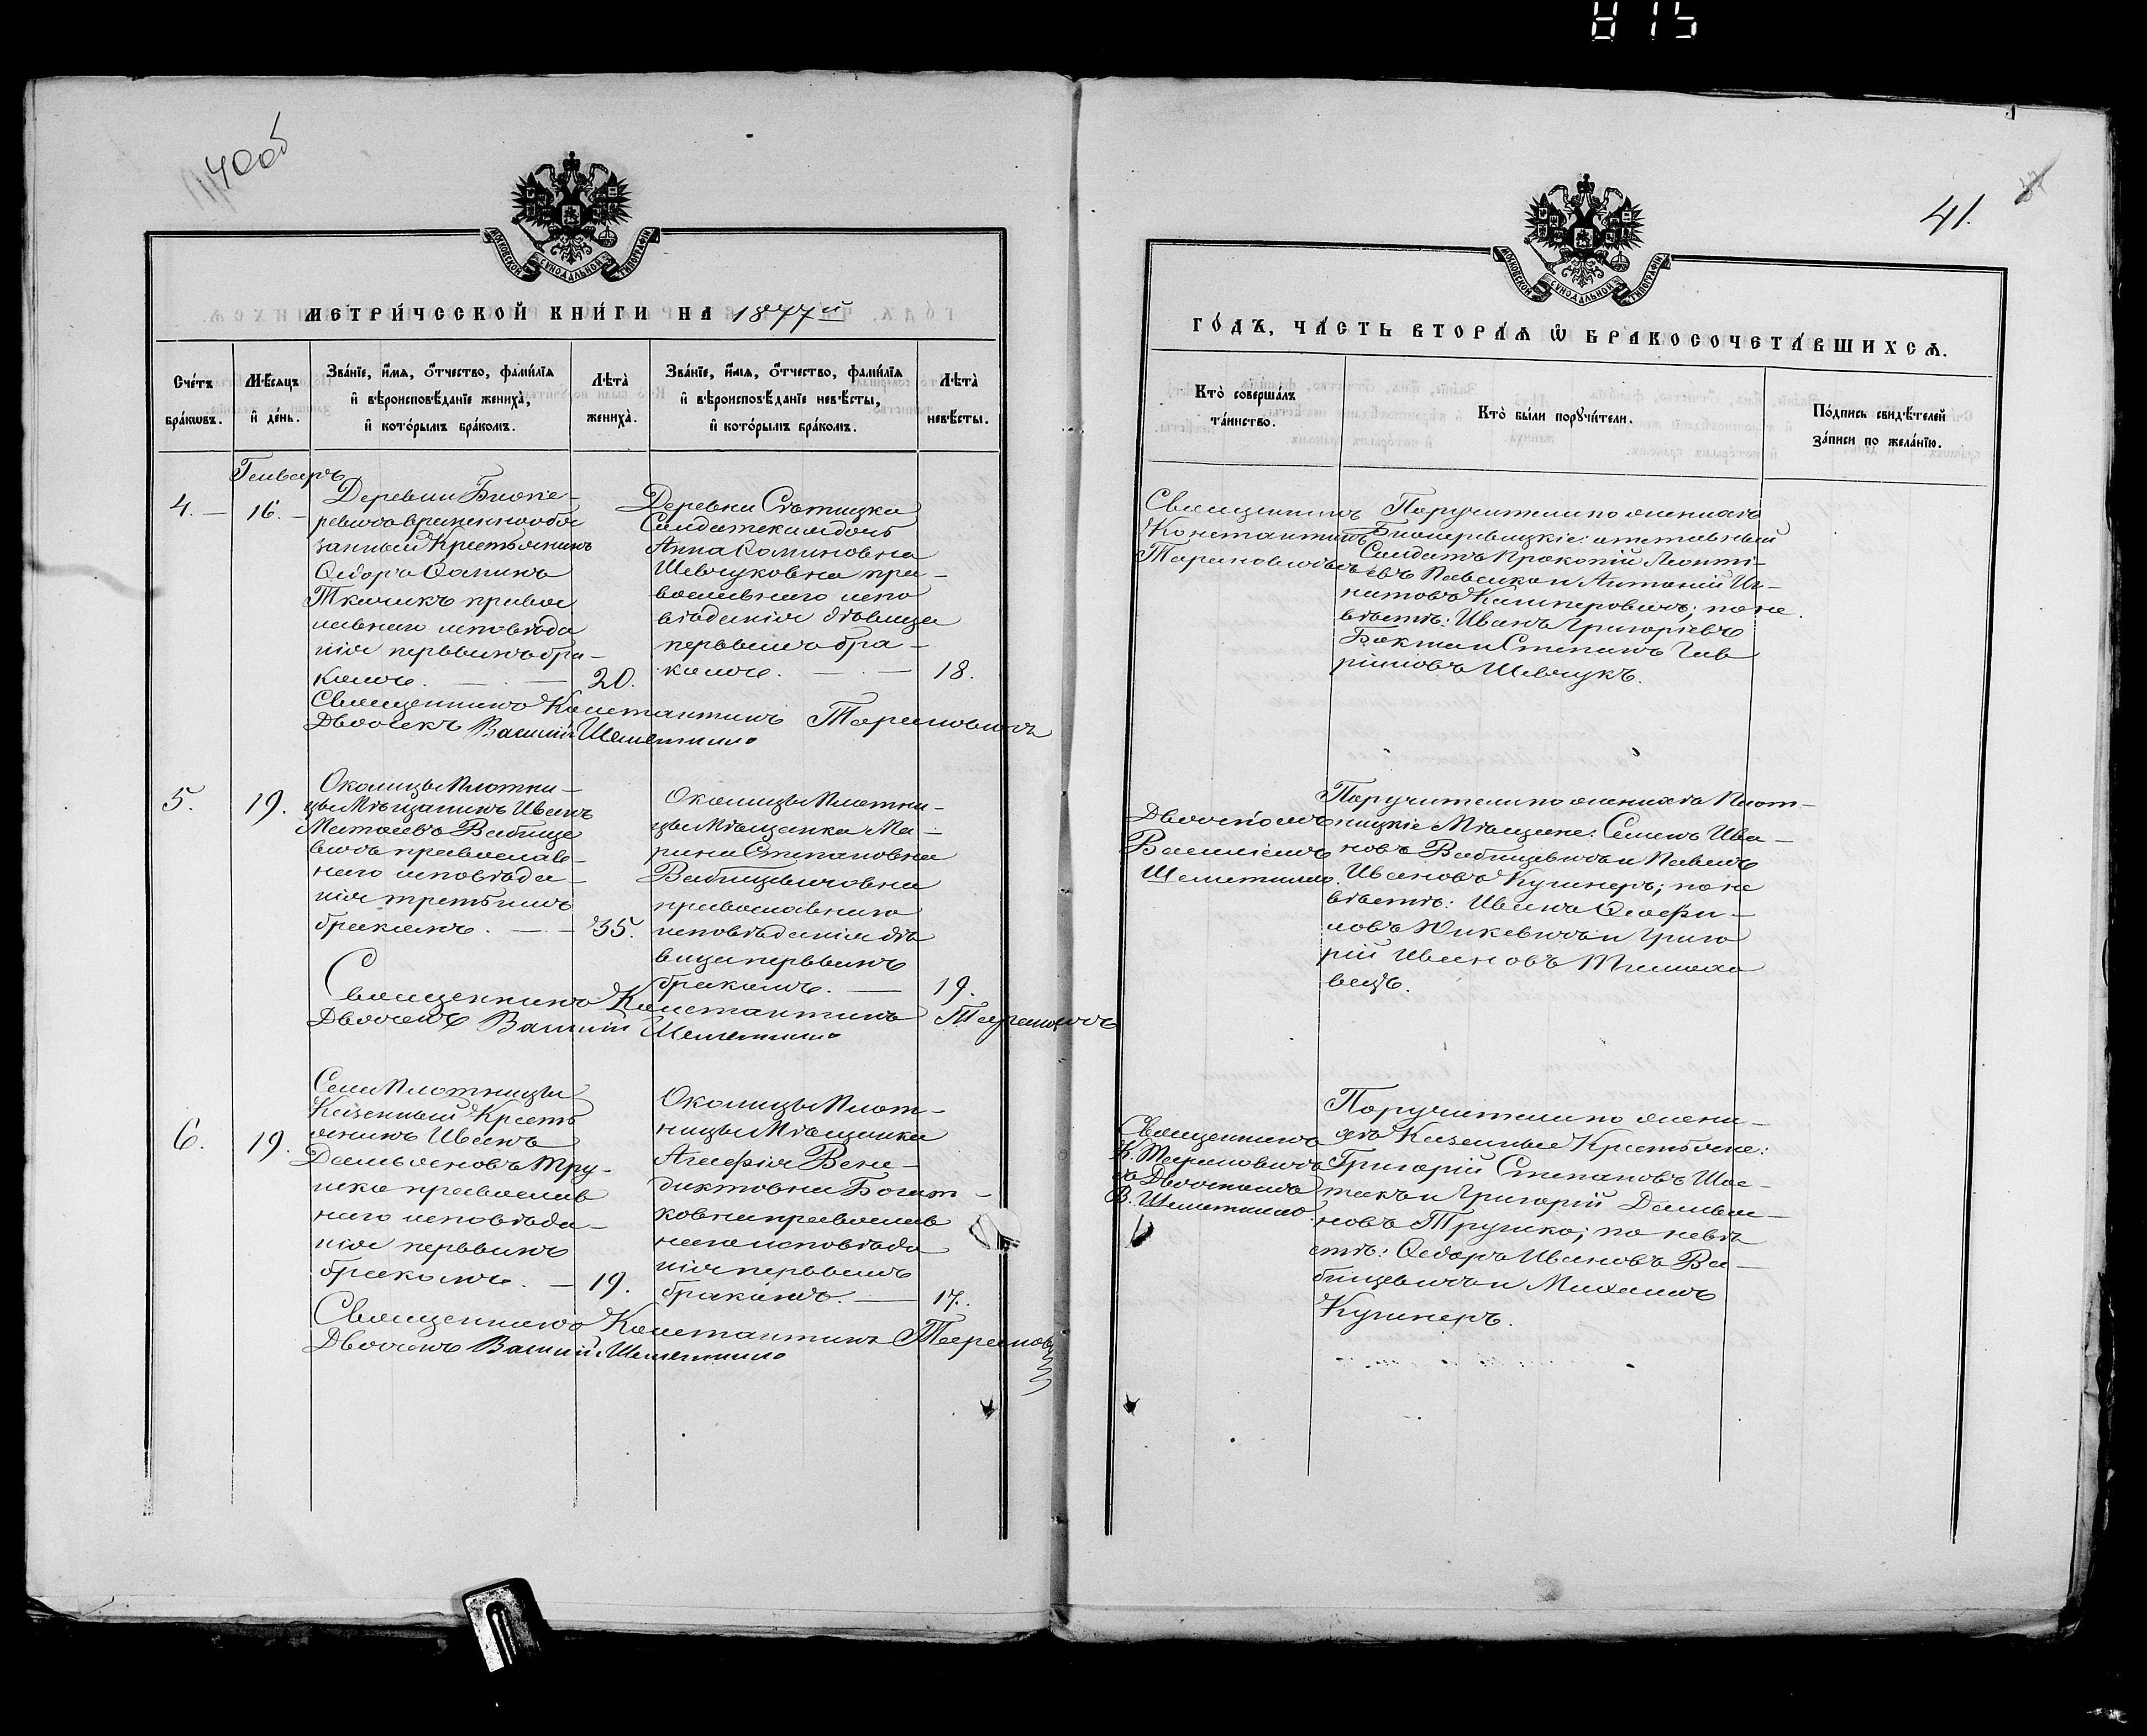 815
40об
41.
МОСКОВСКОЙ СѴНОДАЛЬНОЙ ТИПОГРАФІИ
МЕТРИ́ЧЕСКОЙ КНИ́ГИ НА 1877й
Сче́тъ бра́кѡвъ.
Мѣ́сѧцъ и҆ де́нь.
Зва́нїе, и҆́мѧ, ѻ҆́тчество, фами́лїѧ
и҆ вѣроисповѣ́данїе жениха̀,
и҆ кото́рымъ бра́комъ.
Лѣ́та̀ жениха̀.
Зва́нїе, и҆́мѧ, ѻ҆́тчество, фами́лїѧ
и҆ вѣроисповѣ́данїе невѣ́сты,
и҆ кото́рымъ бра́комъ.
Лѣ́та̀ невѣ́сты.
Генварь
4. — 16. —
Деревни Биопе-
ревичъ временнообя
занный Крестьянинъ
Ѳедоръ Ѳоминъ
Ткачикъ правос
лавнаго исповѣда
нія первымъ бра-
комъ. — — 20.
Деревни Стытицка
Солдатская дочь
Анна Ѳоминовна
Шевчуковна пра-
вославнаго испо
вѣданія дѣвица
первымъ бра-
комъ. — — 18.
Священникъ Константинъ Тарановичъ
Дьячекъ Василій Шеметилло
5. 19.
Околицы Плотни-
цы Мѣщанинъ Иванъ
Матѳеевъ Вабище
вичъ православ-
наго исповѣда-
нія третьимъ
бракомъ. — — 35.
Околицы Плотни-
цы Мѣщанка Ма-
рина Степановна
Вабищевичовна
православнаго
исповѣданія дѣ
вица первымъ
бракомъ. — 19.
Священникъ Константинъ Тарановичъ
Дьячекъ Василій Шеметилло
6. 19.
Села Плотницы
Казенный Кресть
янинъ Иванъ
Демьяновъ Тру-
шко православ
наго исповѣда-
нія первымъ
бракомъ. — 19.
Околицы Плот-
ницы Мѣщанка
Агафія Вене-
диктовна Богат-
ковна православ
наго исповѣда
нія первымъ
бракомъ. — 17.
Священникъ Константинъ Таранов
Дьячекъ Василій Шеметилло
МОСКОВСКОЙ СѴНОДАЛЬНОЙ ТИПОГРАФІИ
ГО́ДЪ, ЧА́СТЬ ВТОРА́Ѧ Ѡ҆ БРАКОСОЧЕТА́ВШИХСѦ.
Кто̀ соверша́лъ та́инство.
Кто̀ бы́ли порꙋчи́тели.
По́дпись свидѣ́телей за́писи по жела́нїю.
Священникъ
Константинъ
Тарановичъ
Поручители по женихѣ
Биоперевицкіе: отставный
Солдатъ Прокопій Леонті-
евъ Павлика и Антоній Иг-
натовъ Камперовичъ; по не
вѣстѣ: Иванъ Григоріевъ
Бакман Степанъ Гав
риловъ Шевчукъ.
Дьячкомъ
Василіемъ
Шеметилло.
Поручители по женихѣ Плот-
ницкіе Мѣщане: Семенъ Ива-
новъ Вабищевичъ и Павелъ
Ивановъ Кушнеръ; по не
вѣстѣ: Иванъ Ѳеофи-
ловъ Юкевичъ и Григо
рій Ивановъ Тимохо
вецъ.
Священникъ
К. Тарановичъ
съ Дьячкомъ
В. Шеметилло.
Поручители по жени-
хѣ Казенные Крестьяне:
Григорій Степановъ Шос-
такъ и Григорій Демья-
новъ Трушко; по невѣ
стѣ: Ѳедоръ Ивановъ Ва-
бищевичъ и Михаилъ
Кушнеръ.